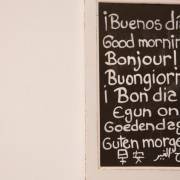 ¡Buenos dí
Good mornin
Bonjour!
Buongiorn
¡Bon dia
Egun on
Goedendag
Guten morge
早安